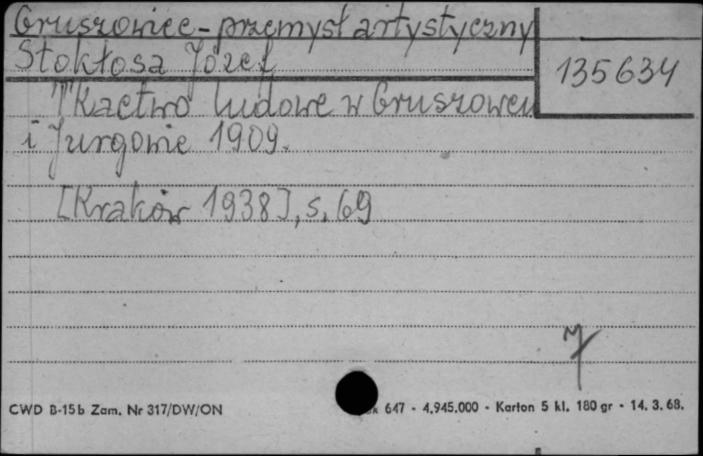 Gruszowiec - przemysł artystyczny
Stokłosa Józef
135634
Tkactwo ludowe w Gruszowcu
i Jurgowie 1909.
[Kraków 1938], s. 69
CWD B-15b Zam. Nr 317/DW/ON
647 - 4.945.000 - Karton 5 kl. 180 gr - 14. 3. 68.